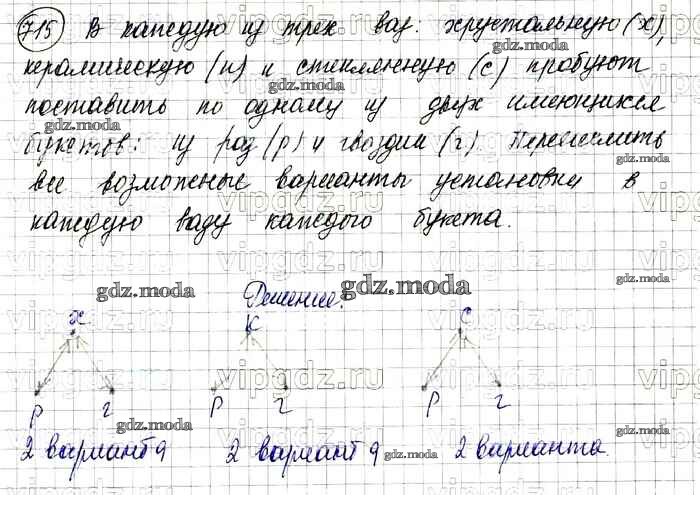 715 В каждую из трех ваз: хрустальную (х),
керамическую (к) и стеклянную (с) пробуют
поставить по одному из двух имеющихся
букетов: из роз (р) и гвоздик (г). Перечислить
все возможные варианты установки в
каждую вазу каждого букета.
Решение.
х к с
р г р г р г
2 варианта 2 варианта 2 варианта.
gdz.moda
vipgdz.ru